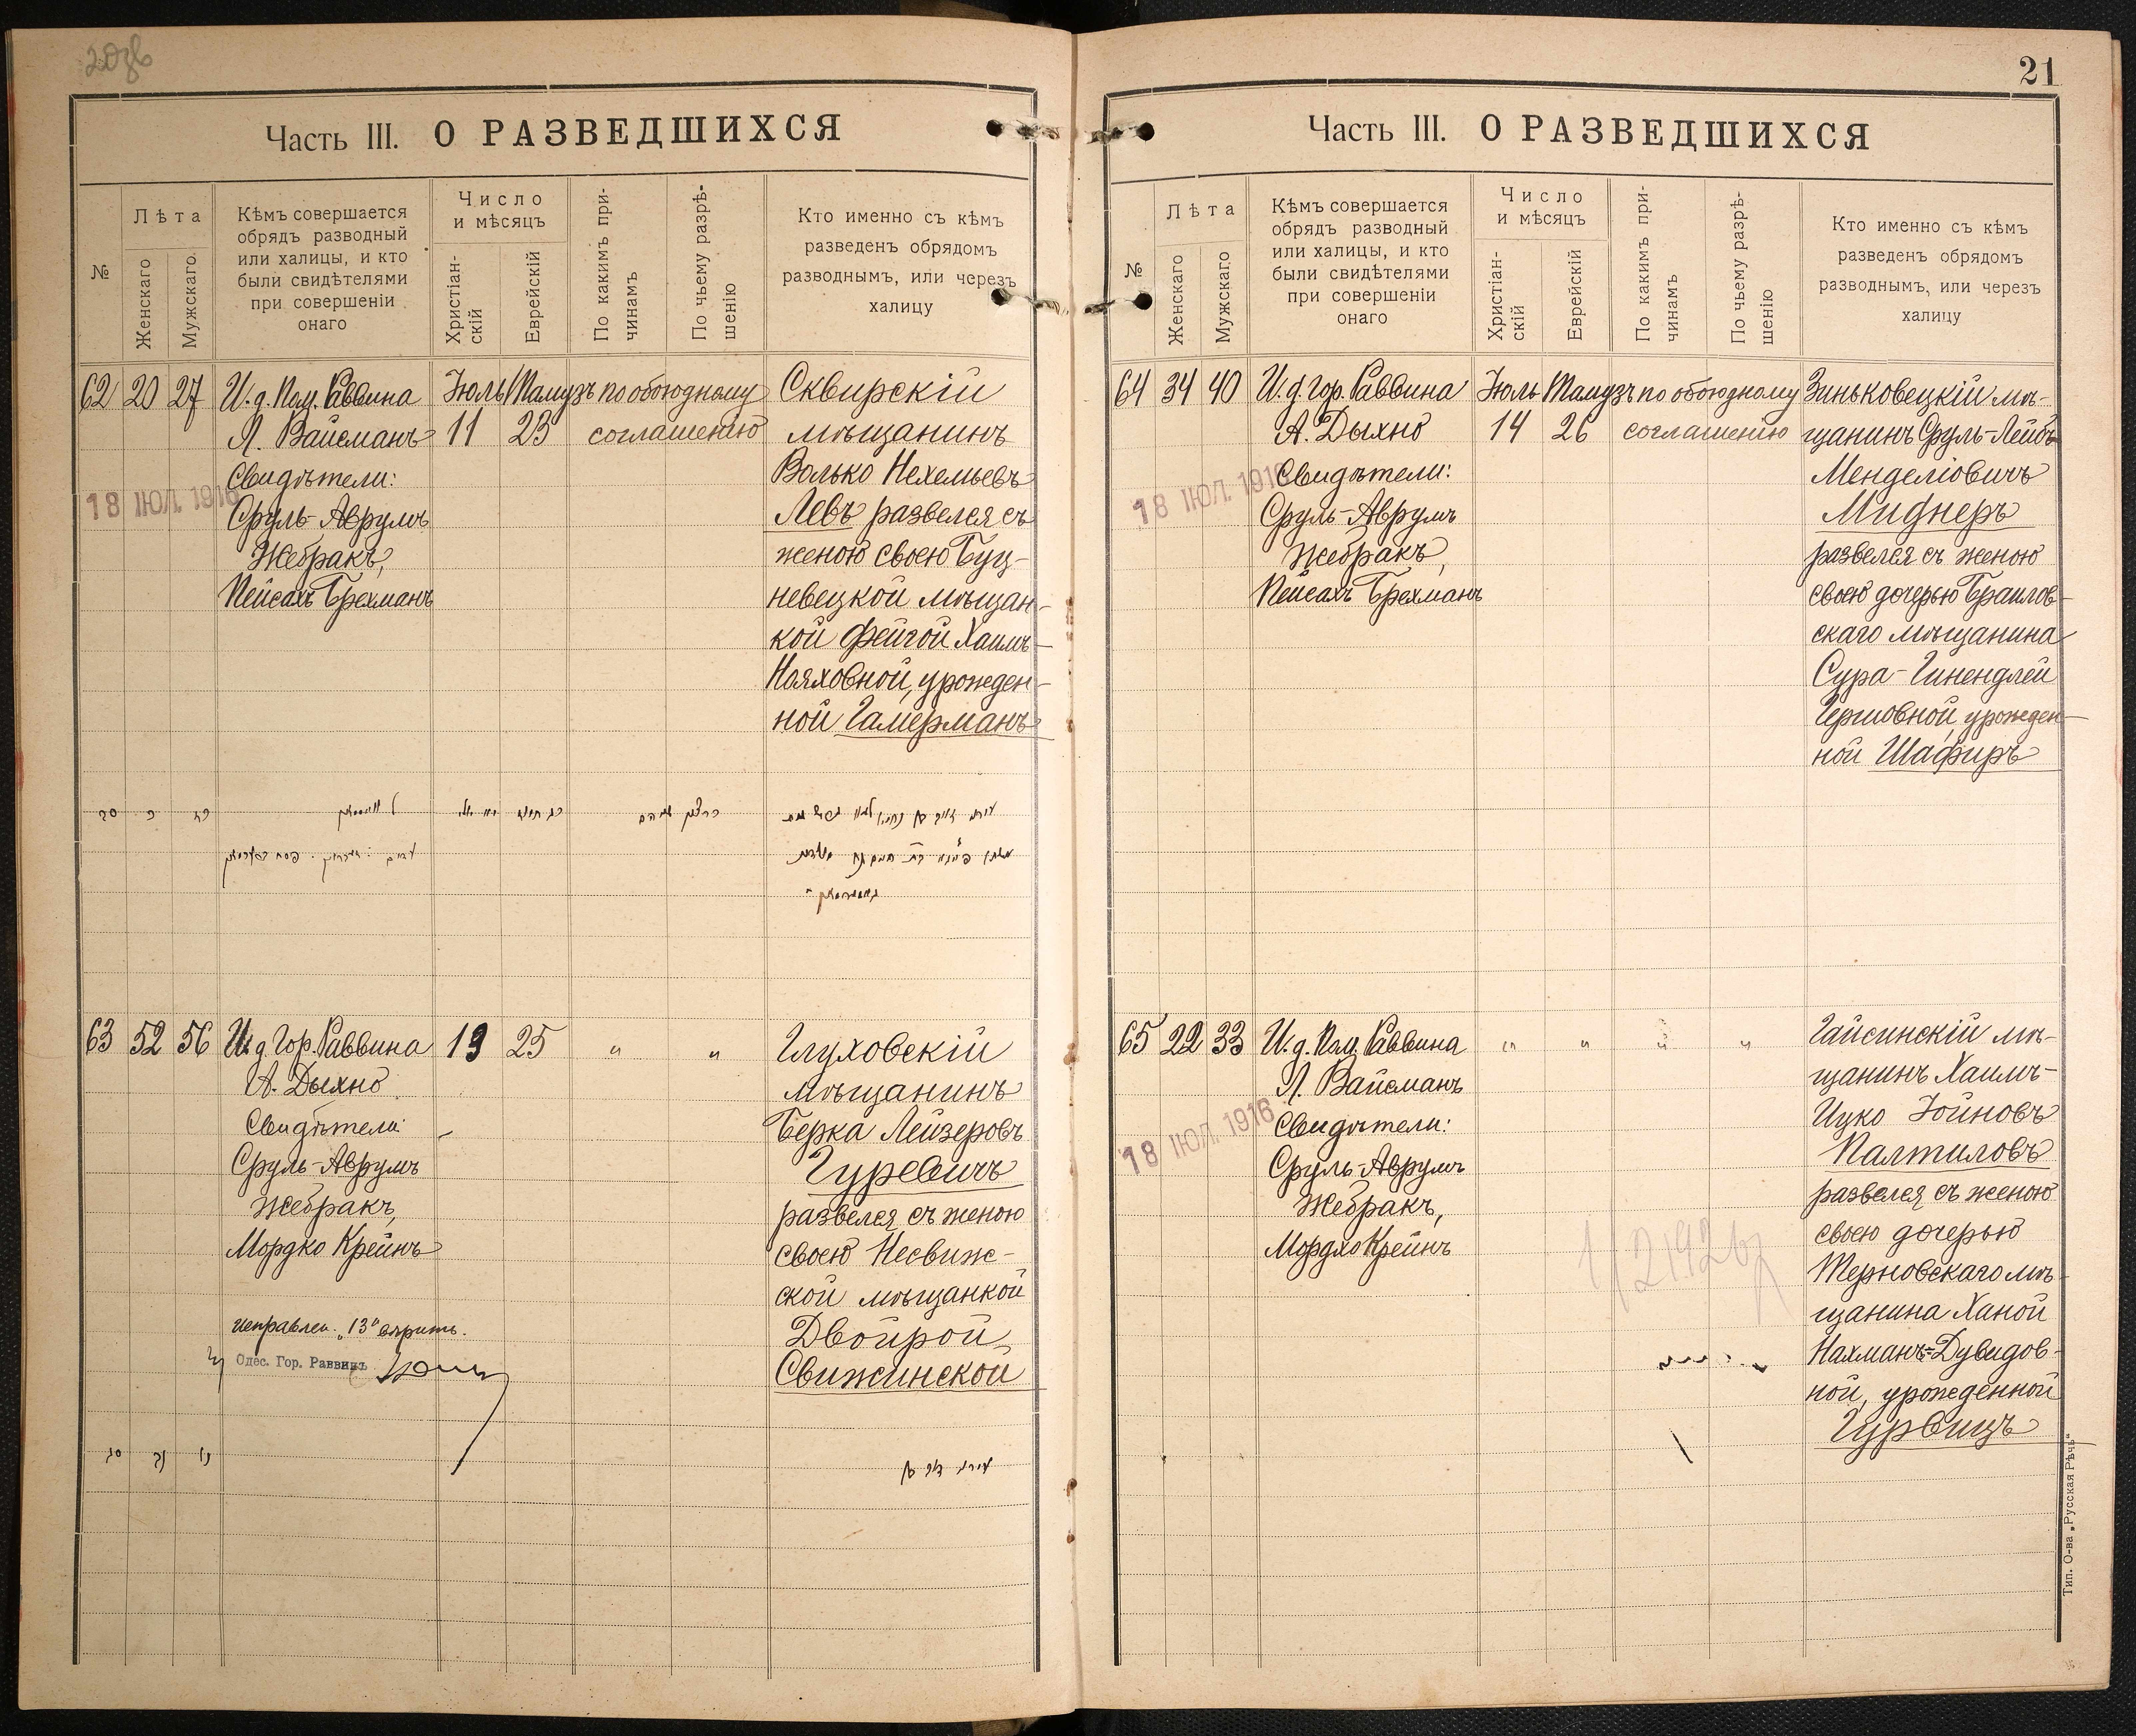 21
Часть III. О РАЗВЕДШИХСЯ
№
Лѣта
Женскаго
Мужскаго.
Кѣмъ совершается
обрядъ разводный
или халицы, и кто
были свидѣтелями
при совершеніи
онаго
Число
и мѣсяцъ
Христіан-
скій
Еврейскій
По какимъ при-
чинамъ
По чьему разрѣ-
шенію
Кто именно съ кѣмъ
разведенъ обрядомъ
разводнымъ, или черезъ
халицу
62 20 27 И. д. Пом. Раввина Іюль Тамузъ по обоюдному Сквирскій
Л. Вайсманъ 11 23 соглашенію мѣщанинъ
Свидѣтели: Волько Нехемьевъ
18 ІЮЛ. 1916
Сруль-Аврумъ Левъ развелся съ
Жебракъ, женою своею Буц-
Пейсахъ Брехманъ невецкой мѣщан-
кой Фейгой Хаимъ-
Нояховной, урожден-
ной Гамерманъ
63 52 56 И. д. Гор. Раввина 13 25 " " Глуховскій
А. Дыхно мѣщанинъ
Свидѣтели: Берка Лейзеровъ
Сруль-Аврумъ Гуревичъ
Жебракъ, развелся съ женою
Мордко Крейнъ своею Несвиж-
ской мѣщанкой
исправлен. „13" вѣрить. Двойрой
Одес. Гор. Раввинъ Свижинской
Часть III. О РАЗВЕДШИХСЯ
№
Лѣта
Женскаго
Мужскаго
Кѣмъ совершается
обрядъ разводный
или халицы, и кто
были свидѣтелями
при совершеніи
онаго
Число
и мѣсяцъ
Христіан-
скій
Еврейскій
По какимъ при-
чинамъ
По чьему разрѣ-
шенію
Кто именно съ кѣмъ
разведенъ обрядомъ
разводнымъ, или черезъ
халицу
64 34 40 И. д. гор. Раввина Іюль Тамузъ по обоюдному Зиньковецкій мѣ-
А. Дыхно 14 26 соглашенію щанинъ Сруль-Лейбъ
Свидѣтели: Менделіовичъ
18 ІЮЛ. 1916
Сруль-Аврумъ Миднеръ
Жебракъ, развелся съ женою
Пейсахъ Брехманъ своею дочерью Браилов-
скаго мѣщанина
Сура-Гинендлей
Гершовной, урожден-
ной Шафиръ
65 22 33 И. д. Пом. Раввина " " " " Гайсинскій мѣ-
Л. Вайсманъ щанинъ Хаимъ-
18 ІЮЛ. 1916
Свидѣтели: Ицко Іойновъ
Сруль-Аврумъ Палтиловъ
Жебракъ, развелся съ женою
Мордко Крейнъ своею дочерью
Терновскаго мѣ-
щанина Ханой
Нахманъ-Дувидов-
ной, урожденной
Гурвицъ
Тип. О-ва „Русская Рѣчь"